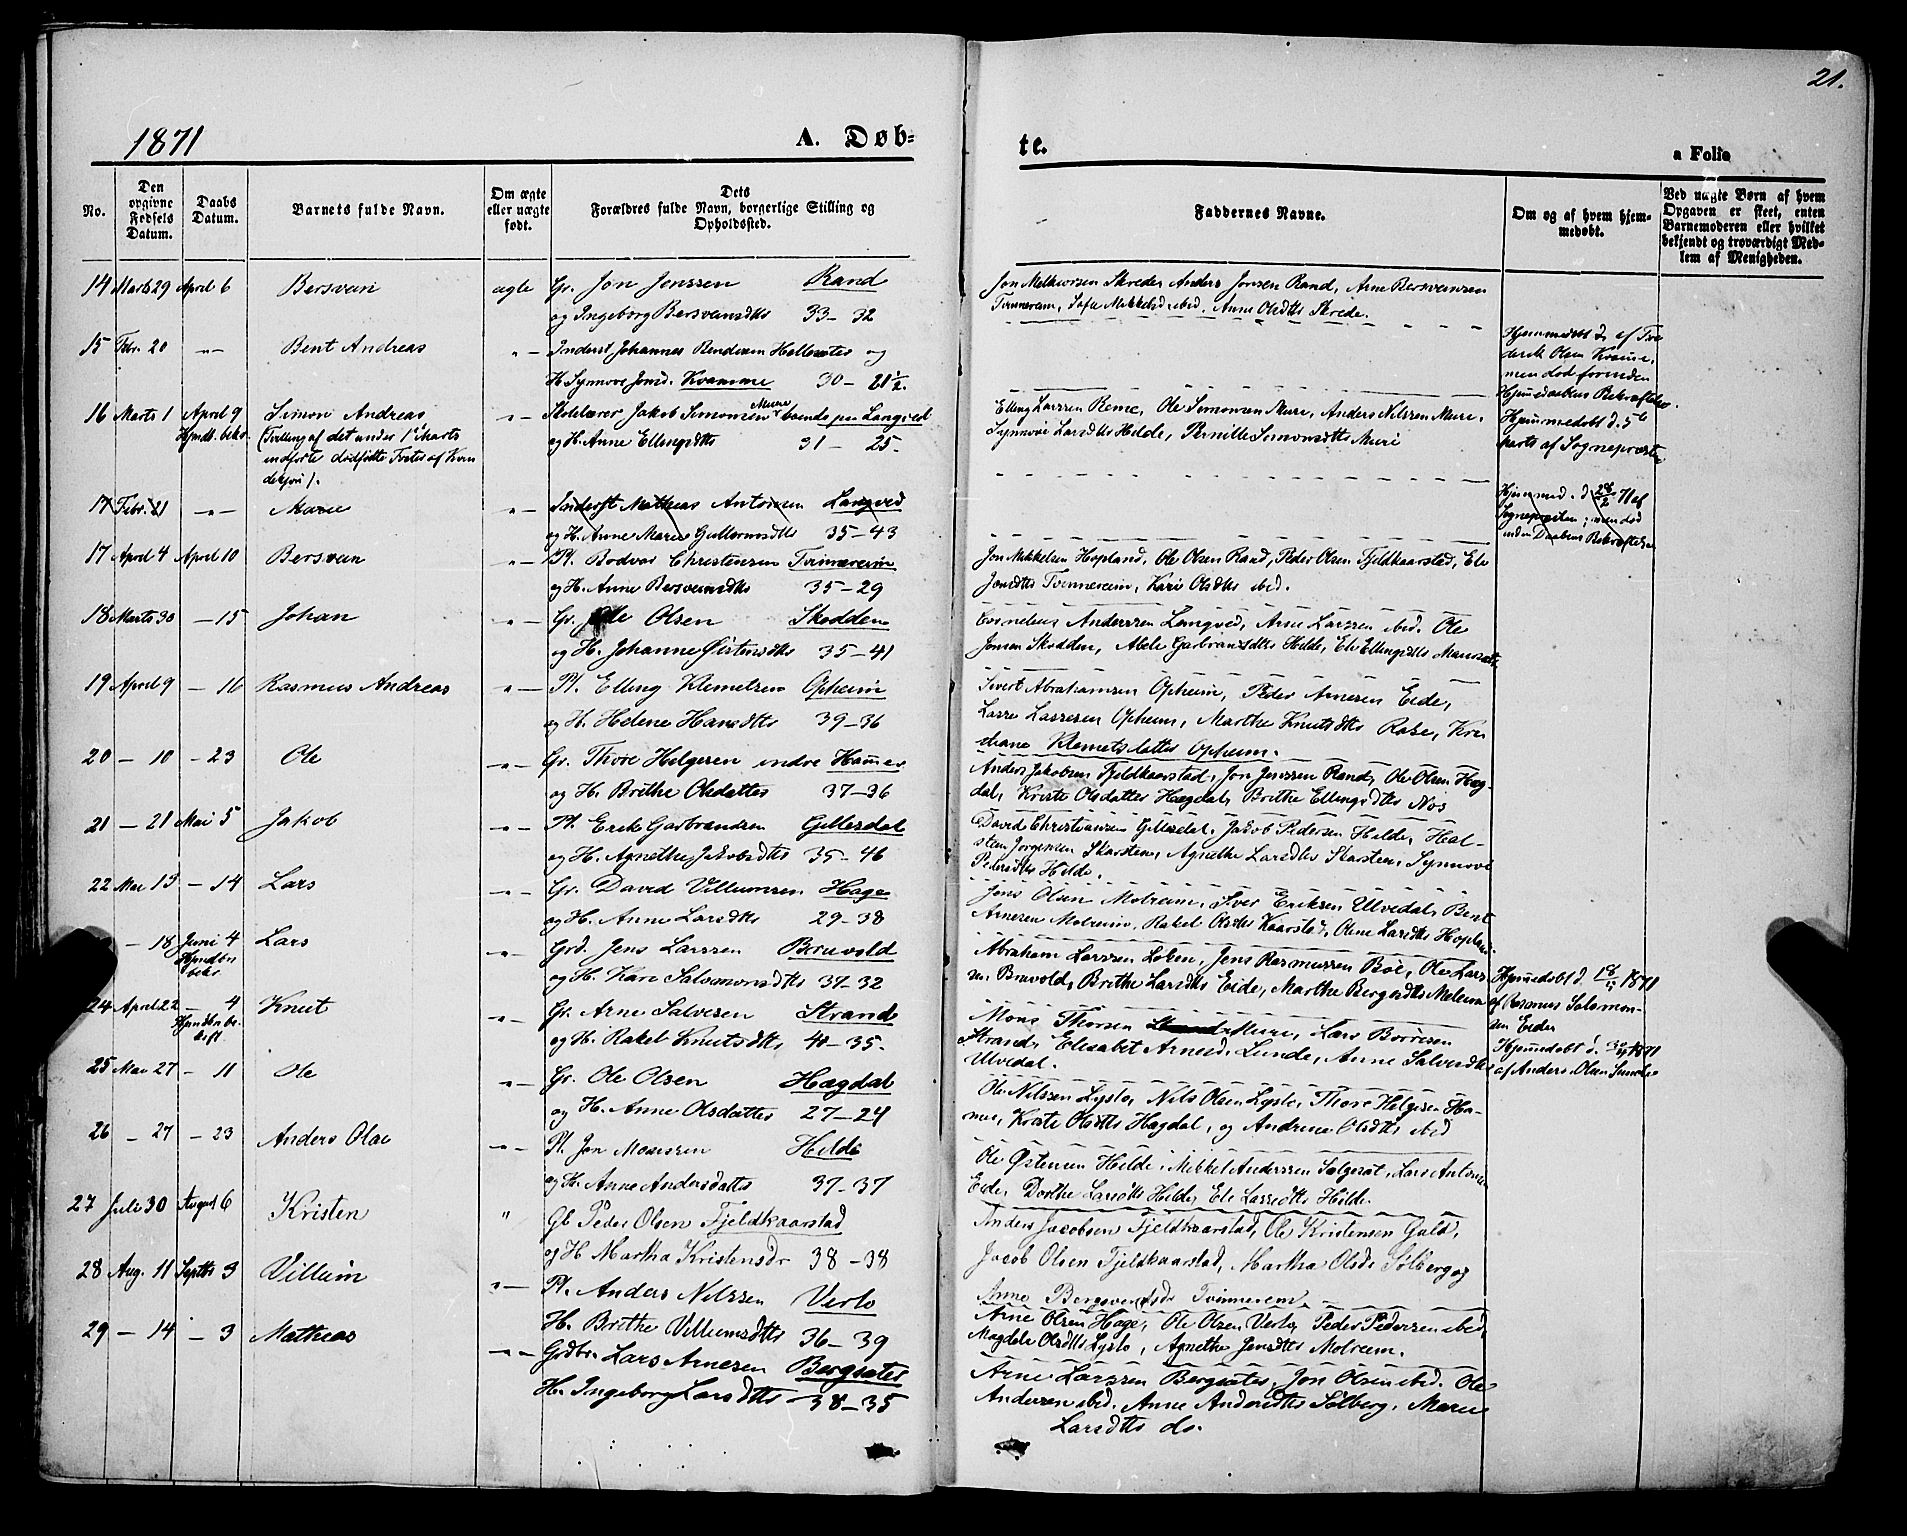 21.
1871
A. Døb-
te.
a Folio
No.
Den opgivne Fødsels Datum.
Daabs Datum.
Barnets fulde Navn.
Om ægte eller uægte født.
Dets Forældres fulde Navn, borgerlige Stilling og Opholdssted.
Faddernes Navne.
Om og af hvem hjemmedøbt.
Ved uægte Børn af hvem Opgaven er skeet, enten Barnemoderen eller hvilket bekjendt og troværdigt Medlem af Menigheden.
14 Marts 29 April 6 Bersvan ægte Gr. Jon Jenssen Rand
og Ingeborg Bersvensdtts 33-32
Jon Melkiorsen Skrede, Anders Jonsen Rand, Arne Bersvensen
Tvinnereim, Sofie Mikkelsd. ibid. Anne Olsdtts Skrede.
15 Febr. 20 -"- Bent Andreas "- Inderst Johannes Bendixen Hellesæter og
H. Synnøve Jonsd. Kvamme 30-21½.
Hjemmedøbt d. af
Olsen Kvamme,
men død forinden
Hjemmedaabens Bekræftelse.
16 Marts 1 April 9 Simon Andreas "- Skolelærer Jakob Simonsen Muri boende paa Langved
Hjmdb. bekr. (Tvilling af det under 1ste Marts
indførte dødfødte Foster af Kvindekjøn).
og H. Anne Ellingsdtts 31-25.
Elling Larssen Reme, Ole Simonsen Muri, Anders Nilssen Muri,
Synnøve Larsdtts Hilde, Pernille Simonsdtts Muri
Hjemmedøbt d. 5te
Marts af Sognepræsten
17 Febr. 21 -"- Marie "- Inderst Mathias Antonsen Langved
og H. Anne Marie Guttormsdtts 35-43
Hjemmed. d. 28/2 71 af
Sognepræsten; men død
inden Daabens Bekræftelse
17 April 4 April 10 Bersvan "- Pl. Bodvar Christensen Tvinnereim
og H. Anne Bersvensdtts 35-29
Jon Mikkelsen Hopland, Ole Olsen Rand, Peder Olsen Fjeldkaarstad, Eli
Jonsdtts Tvinnereim, Kari Olsdtts ibid.
18 Marts 30 -15 Johan "- Gr. Ole Olsen Skodden
og H. Johanne Østensdtts 35-41
Cornelius Anderssen Langved, Arne Larssen ibid. Ole
Jonsen Skodden, Abele Garbransdtts Hilde, Eli Ellingsdtts
19 April 9 -16 Rasmus Andreas "- Pl. Elling Klemetsen Opheim
og H. Helene Hansdtts 39-36
Sivert Abrahamsen Opheim, Peder Arnesen Eide,
Lasse Lassesen Opheim, Marthe Knutsdtts Rake, Kristiane
Klemetsdatter Opheim.
20 -10 -23 Ole "- Gr. Thore Helgesen indre Hammer
og H. Brithe Olsdatter 37-36
Anders Jakobsen Fjeldkaarstad, Jon Jenssen Rand, Ole Olsen Hægdal,
Kirste Olsdatter Hægdal, Brithe Ellingsdtts Nos
21 -21 Mai 5 Jakob "- Pl. Erik Garbrandsen Gillesdal
og H. Agnethe Jakobsdtts 35-46
David Christiansen Gillesdal, Jakob Pedersen Hilde, Halsten
Jørgensen Skarsten, Agnethe Larsdtts Skarsten, Synnøve
Pedersdtts Hilde.
22 Mai 13 -14 Lars "- Gr. David Villumsen Hage
og H. Anne Larsdtts 29-38
Jens Olsen Molreim, Iver Eriksen Ulvedal, Bent
Arnesen Molreim, Rakel Olsdtts Kaarstad, Oline Larsdtts Hopland.
-18 Juni 4 Lars "- Grd. Jens Larssen Bruvold
Hjmdbs bekr.
og H. Kari Salomonsdtts 37-32
Abraham Larssen Loken, Jens Rasmussen Bøe, Ole Larssen
Bruvold, Brithe Larsdtts Eide, Marthe Bergesdtts Melem
Hjemmedøbt d. 1871
af Rasmus Salomonsen
Eide
24 April 22 -4 Knut "- Gr. Arne Salvesen Strand
og H. Rakel Knutsdtts 40-35.
Mons Thorsen Muri, Lars Børresen
Strand, Elisabet Arnesd. Lunde, Anne Salvesdtts
Ulvedal.
Hjemmedøbt d. 1871
af Anders Olsen
25 Mai 27 -11 Ole "- Gr. Ole Olsen Hægdal
og H. Anne Olsdatter 27-24
Ole Nilssen Lyslo, Nils Olsen Lyslo, Thore Helgesen Hammer,
Kirste Olsdtts Hægdal, og Andrine Olsdtts ibid
26 -27 -23 Anders Olai "- Pl. Jon Monssen Hilde
og H. Anne Andersdatter 37-37
Ole Østensen Hilde, Mikkel Anderssen Sølgerøt, Lars Antonsen
Eide, Dorthe Larsdtts Hilde, Eli Lassedtts Hilde.
27 Juli 30 August 6 Kristen " Gb. Peder Olsen Fjeldkaarstad
og H. Martha Kristensdr 38-38
Anders Jacobsen Fjeldkaarstad, Ole Kristensen Guld,
Jacob Olsen Fjeldkaarstad, Martha Olsdr Sølberg og
Anne Bergsvensdr Tvinnerem.
28 Aug. 11 Septbr 3 Villum "- Pl. Anders Nilssen Verlo
H. Brithe Villumsdtts 36-39
Arne Olsen Hage, Ole Olsen Verlo, Peder Pedersen ibid,
Magdele Olsdtts Lyslo, Agnethe Jensdtts Molreim.
29 -14 -3 Mathias "- Grdbr. Lars Arnesen Bergsæter
H. Ingeborg Larsdtts 38-35
Arne Larssen Bergsæter, Jon Olsen ibid. Ole
Andersen ibid. Anne Andersdtts Sølberg, Maren
Larsdtts do.